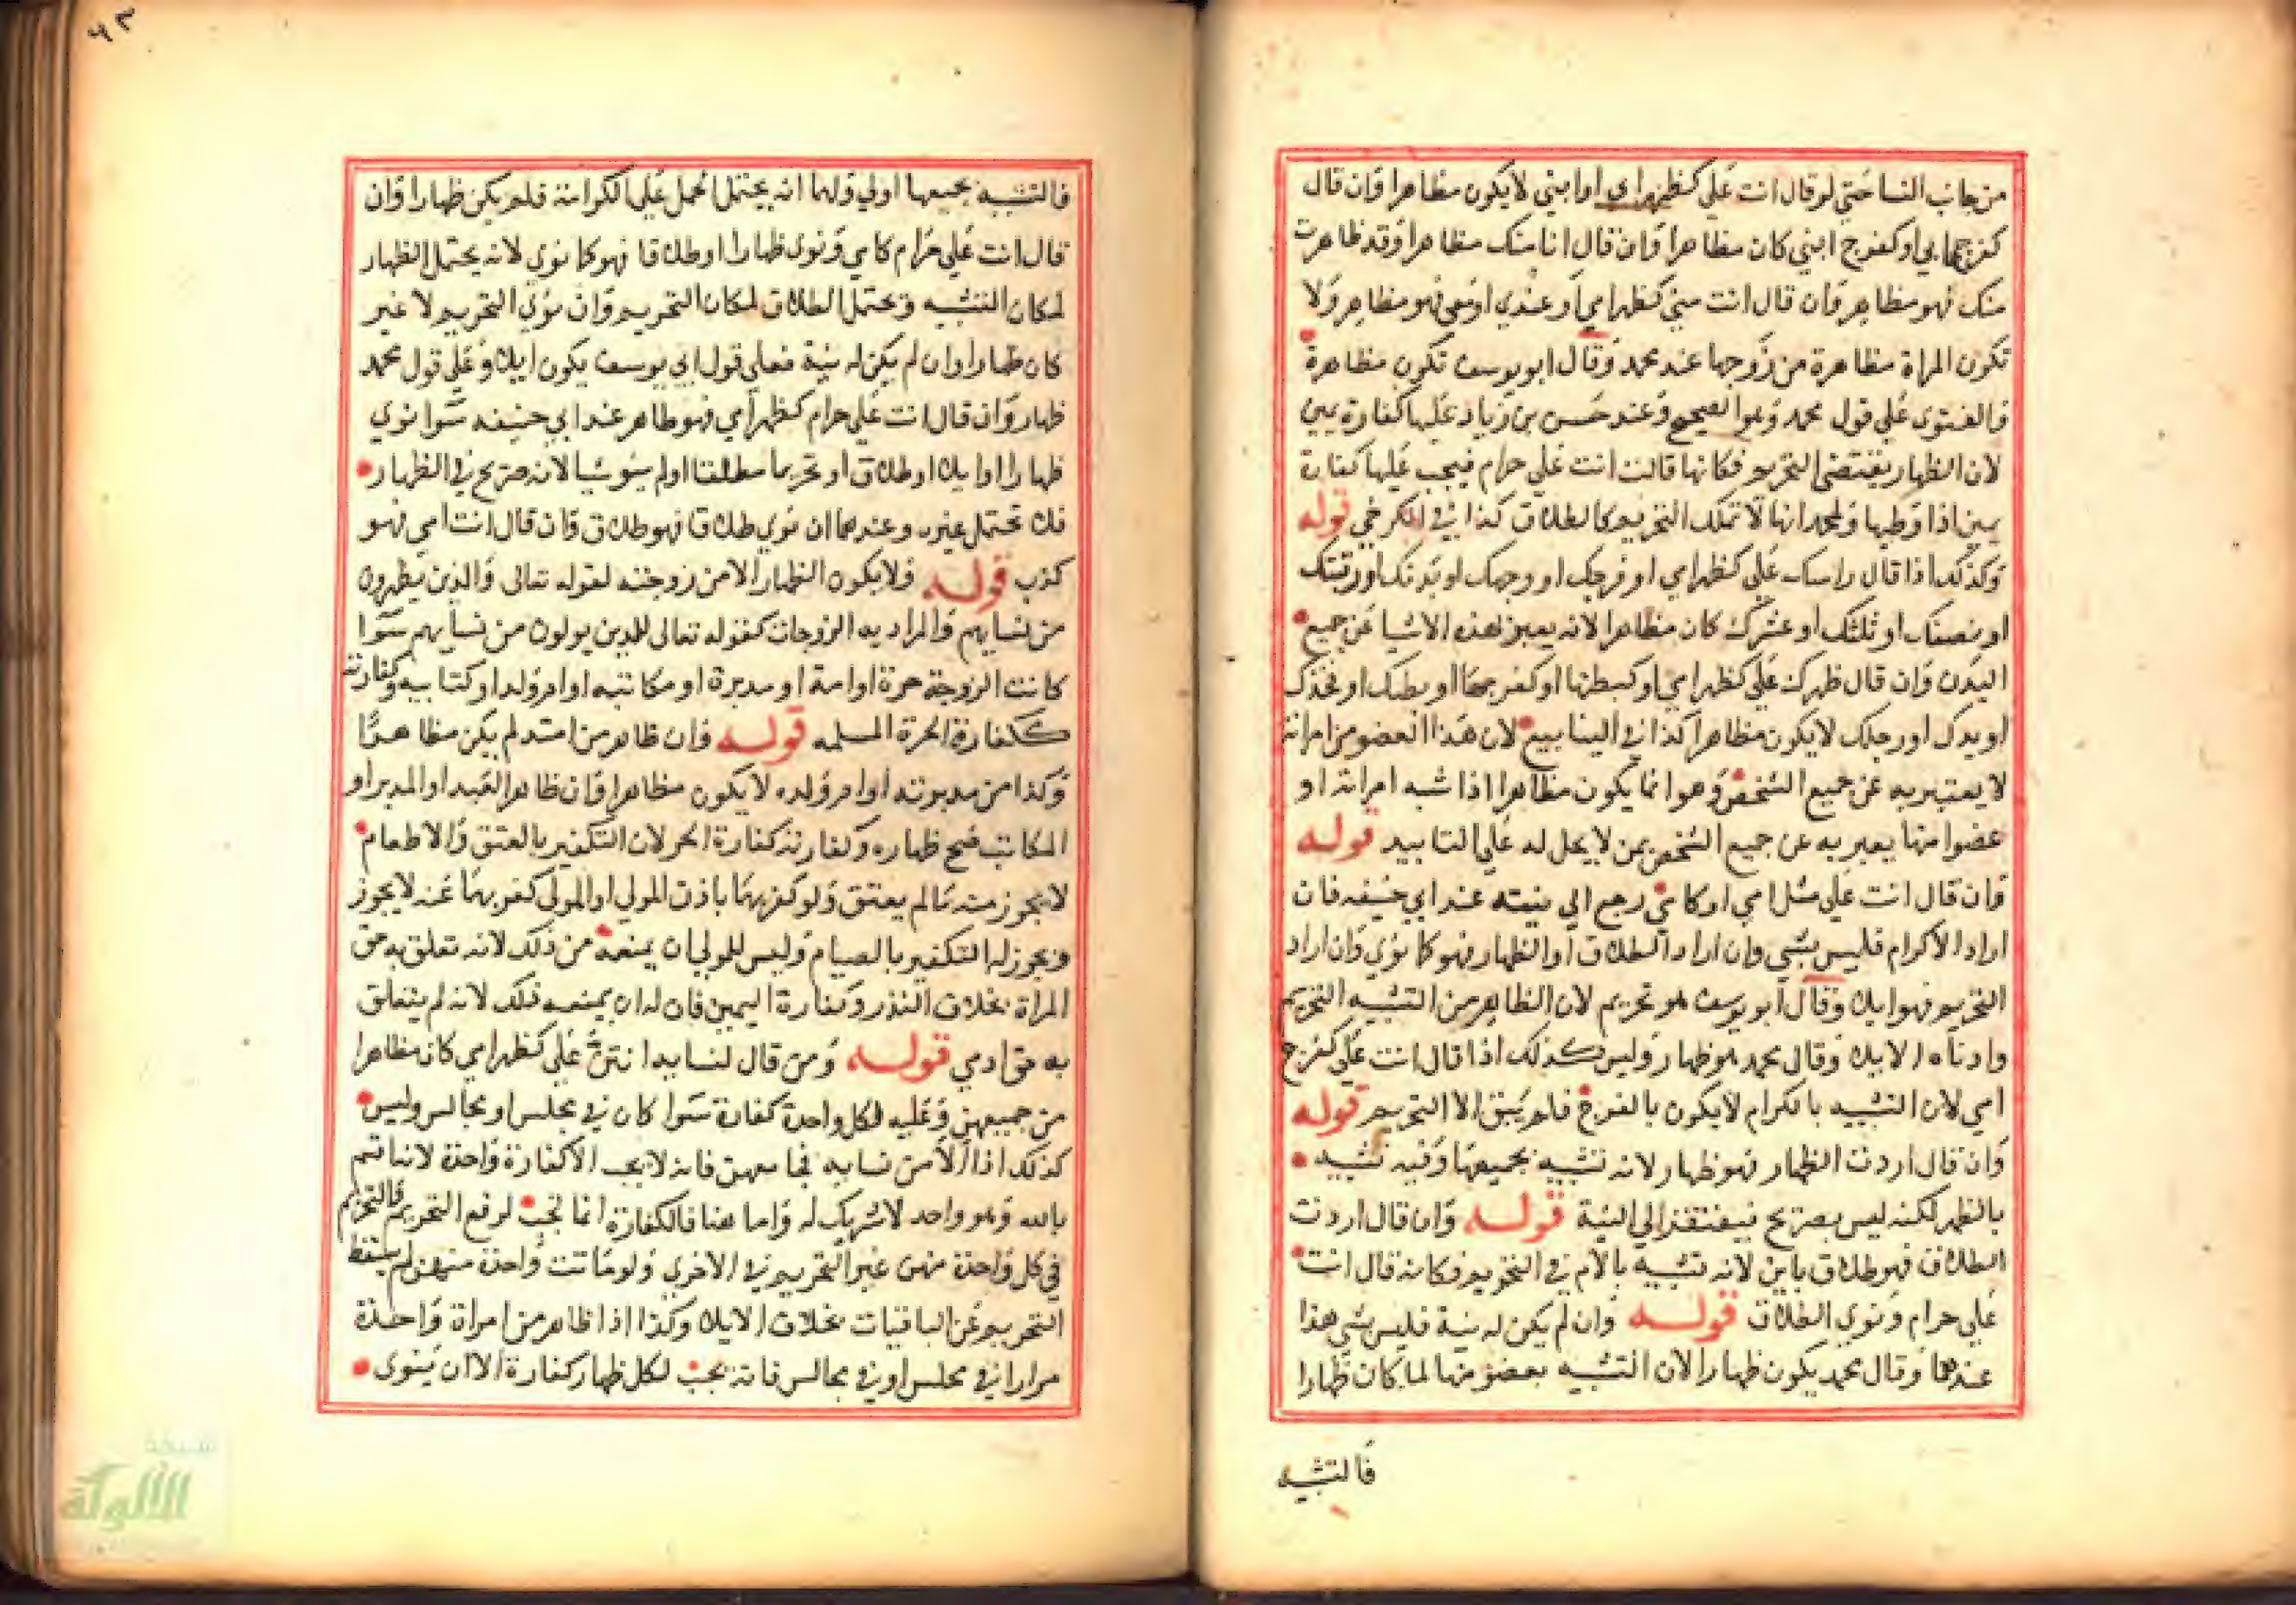 من جانب النسا حتى لو قال انت علي كظهر ابي او ابني لا يكون مظاهرا وان قال
كفرج ابي او كفرج ابني كان مظاهرا وان قال انا منك مظاهر او قد ظاهرت
منك فهو مظاهر وان قال انت مني كظهر امي او عندي او معي فهو مظاهر ولا
تكون المراة مظاهرة من زوجها عند محمد وقال ابو يوسف تكون مظاهرة
والفتوى على قول محمد وهو الصحيح وعند حسن بن زياد عليها كفارة يمين
لان الظهار يقتضي التحريم فكانها قالت انت علي حرام فيجب عليها كفارة
يمين اذا وطيها ولمحمد انها لا تملك التحريم كالطلاق كذا في الكرخي قوله
وكذلك اذا قال راسك علي كظهر امي او فرجك او وجهك او بدنك او رقبتك
او نصفك او ثلثك او عشرك كان مظاهرا لانه يعبر بهذه الاشيا عن جميع
البدن وان قال ظهرك علي كظهر امي او كبطنها او كفرجها او بطنك او فخذك
او يدك او رجلك لا يكون مظاهرا كذا في الينابيع لان هذا العضو من امراته
لا يعبر به عن جميع الشخص وهو انما يكون مظاهرا اذا شبه امراته او
عضوا منها يعبر به عن جميع الشخص بمن لا يحل له علي التابيد قوله
وان قال انت علي مثل امي او كامي رجع الي نيته عند ابي حنيفه فان
اراد الاكرام فليس بشي وان اراد الطلاق او الظهار فهو كما نوي وان اراد
التحريم فهو ايلا وقال ابو يوسف هو تحريم لان الظاهر من التشبيه التحريم
وادناه الايلا وقال محمد هو ظهار وليس كذلك اذا قال انت علي كفرج
امي لان التشبيه بالكرام لا يكون بالفرج فلم يبق الا التحريم قوله
وان قال اردت الظهار فهو ظهار لانه تشبيه بجميعها وفيه تشبيه
بالظهر لكنه ليس بصريح فيفتقر الي النية قوله وان قال اردت
الطلاق فهو طلاق باين لانه تشبيه بالام في التحريم فكانه قال انت
علي حرام ونوي الطلاق قوله وان لم يكن له نية فليس بشي هذا
عندهما وقال محمد يكون ظهارا لان التشبيه بعضو منها لما كان ظهارا
فالتشبيه
٦٣
فالتشبيه بجميعها اولي ولهما انه يحتمل الحمل علي الكرامة فلم يكن ظهارا وان
قال انت علي حرام كامي ونوى ظهارا او طلاقا فهو كما نوي لانه يحتمل الظهار
لمكان التشبيه ويحتمل الطلاق لمكان التحريم وان نوي التحريم لا غير
كان ظهارا وان لم يكن له نية فعلي قول ابي يوسف يكون ايلا وعلي قول محمد
ظهار وان قال انت علي حرام كظهر امي فهو ظاهر عند ابي حنيفه سوا نوي
ظهارا او ايلا او طلاق او تحريما مطلقا او لم ينو شيا لانه صريح في الظهار
فلا تحتمل غيره وعندهما ان نوي طلاقا فهو طلاق وان قال انت امي فهو
كذب قوله ولا يكون الظهار الا من زوجته لقوله تعالى والذين يظهرون
من نسايهم والمراد به الزوجات كقوله تعالى للذين يولون من نسايهم سوا
كانت الزوجة حرة او امة او مدبرة او مكاتبه او ام ولد او كتابيه وكفارته
ككفارة الحرة المسلمه قوله فان ظاهر من امته لم يكن مظاهرا
وكذا من مدبرته او ام ولده لا يكون مظاهرا وان ظاهر العبد او المدبر او
المكاتب صح ظهاره وكفارته كفارة الحر لان التكفير بالعتق والاطعام
لا يجوز منه ما لم يعتق ولو كفر بهما باذن المولي او المولي كفر بهما عنه لا يجوز
ويجوز له التكفير بالصيام وليس للمولي ان يمنعه من ذلك لانه تعلق به حق
المراة بخلاف النذر وكفارة اليمين فان له ان يمنعه ذلك لانه لم يتعلق
به حق ادمي قوله ومن قال لنسايه انتن علي كظهر امي كان مظاهرا
من جميعهن وعليه لكل واحدة كفارة سوا كان في مجلس او مجالس وليس
كذلك اذا الا من نسايه فجامعهن فانه لا يجب الا كفارة واحدة لانها قسم
بالله وهو واحد لا شريك له واما هنا فالكفارة انما تجب لرفع التحريم فالتحريم
في كل واحدة منهن غير التحريم في الاخري ولو ماتت واحدة منهن لم يسقط
التحريم عن الباقيات بخلاف الايلا وكذا اذا ظاهر من امراة واحدة
مرارا في مجلس او في مجالس فانه يجب لكل ظهار كفارة الا ان ينوى
شبكة
الألوكة